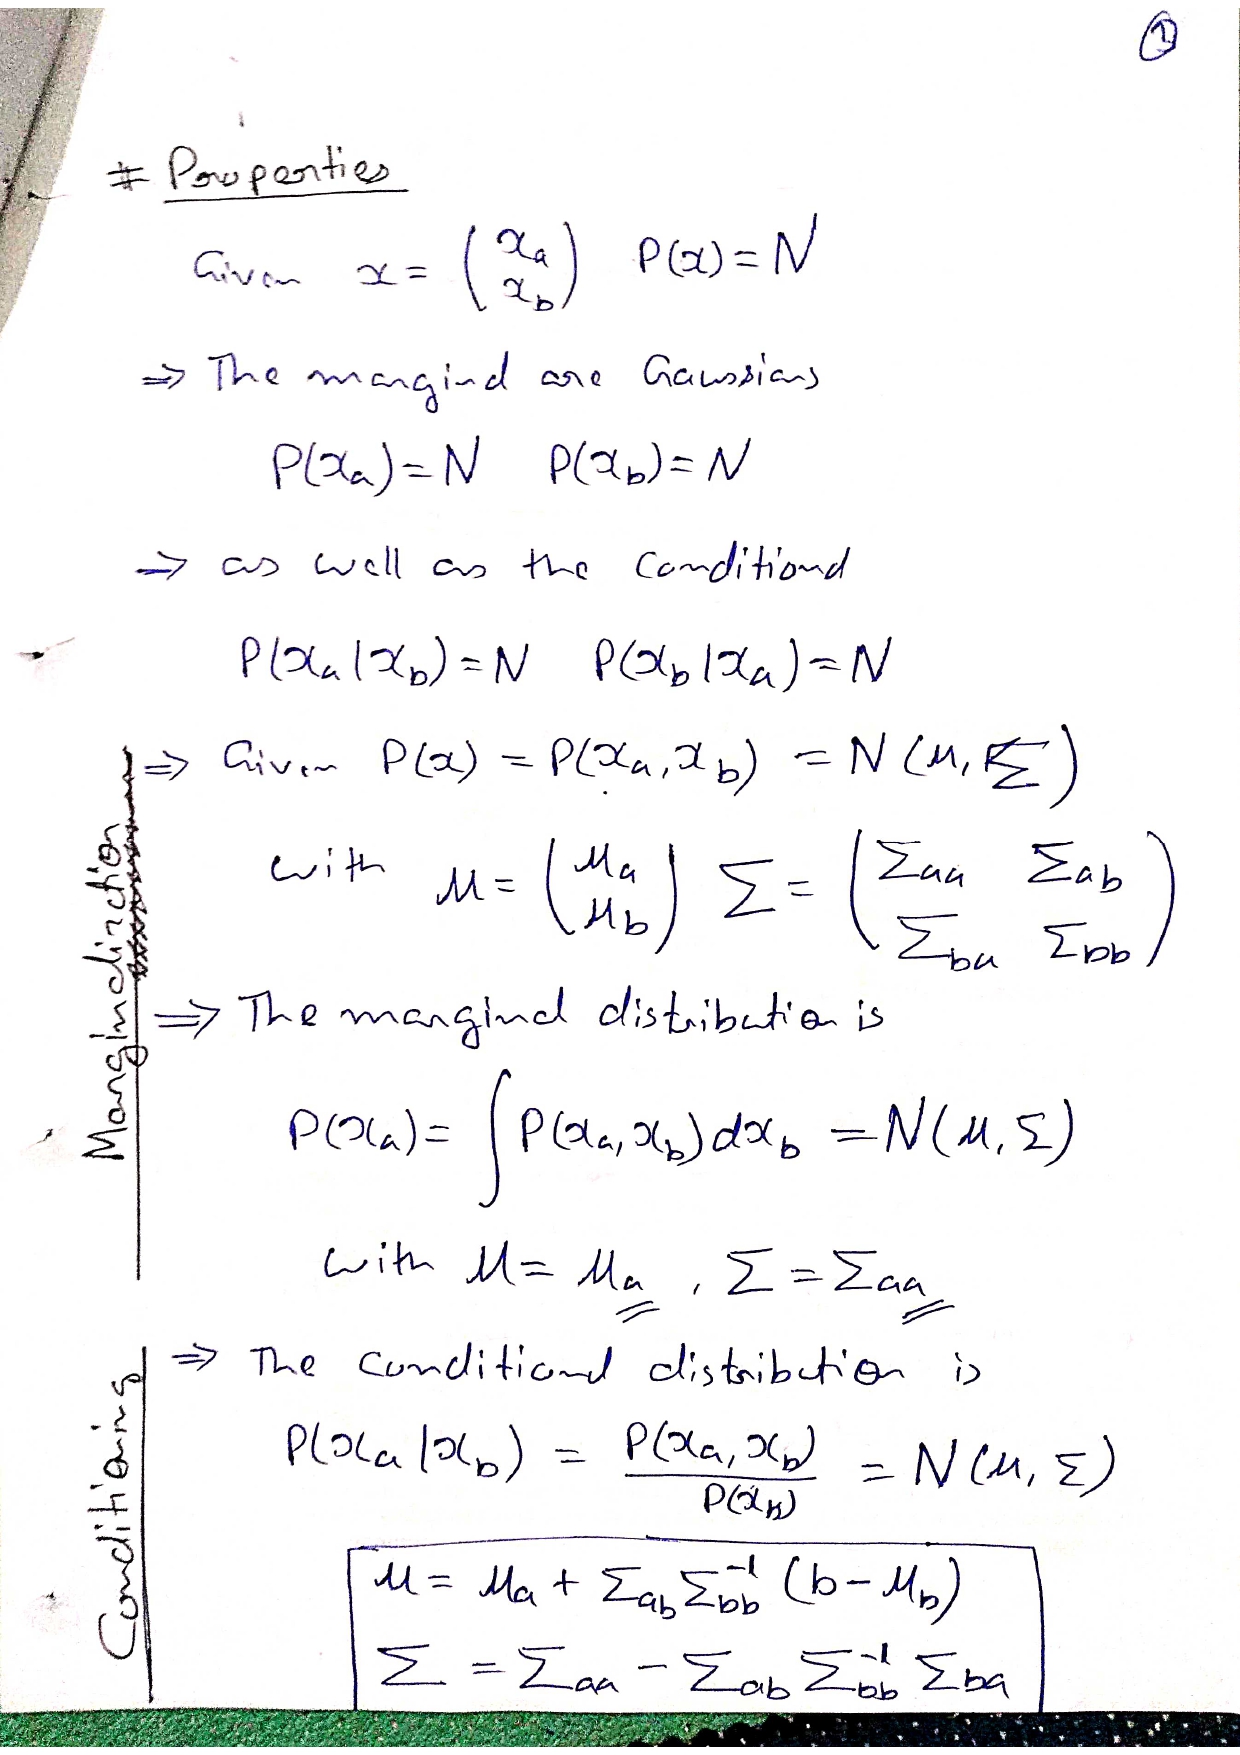 1
# Properties
Given x = (x_a x_b) P(x) = N
⇒ The marginal are Gaussians
P(x_a) = N P(x_b) = N
⇒ as well as the conditional
P(x_a | x_b) = N P(x_b | x_a) = N
Marginalization
⇒ Given P(x) = P(x_a, x_b) = N(μ, Σ)
with μ = (μ_a μ_b) Σ = (Σ_aa Σ_ab Σ_ba Σ_bb)
⇒ The marginal distribution is
P(x_a) = ∫ P(x_a, x_b) dx_b = N(μ, Σ)
with μ = μ_a , Σ = Σ_aa
Conditioning
⇒ The conditional distribution is
P(x_a | x_b) = P(x_a, x_b) / P(x_b) = N(μ, Σ)
μ = μ_a + Σ_ab Σ_bb^-1 (b - μ_b)
Σ = Σ_aa - Σ_ab Σ_bb^-1 Σ_ba